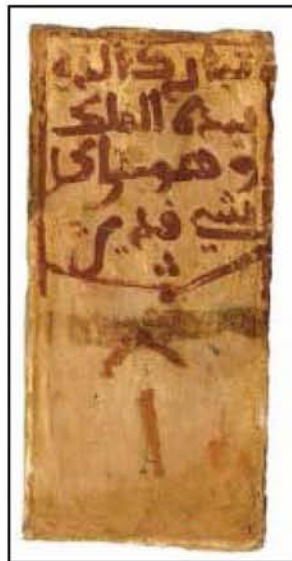 تبارك الذي
بيده الملك
وهو على كل
شي قدير